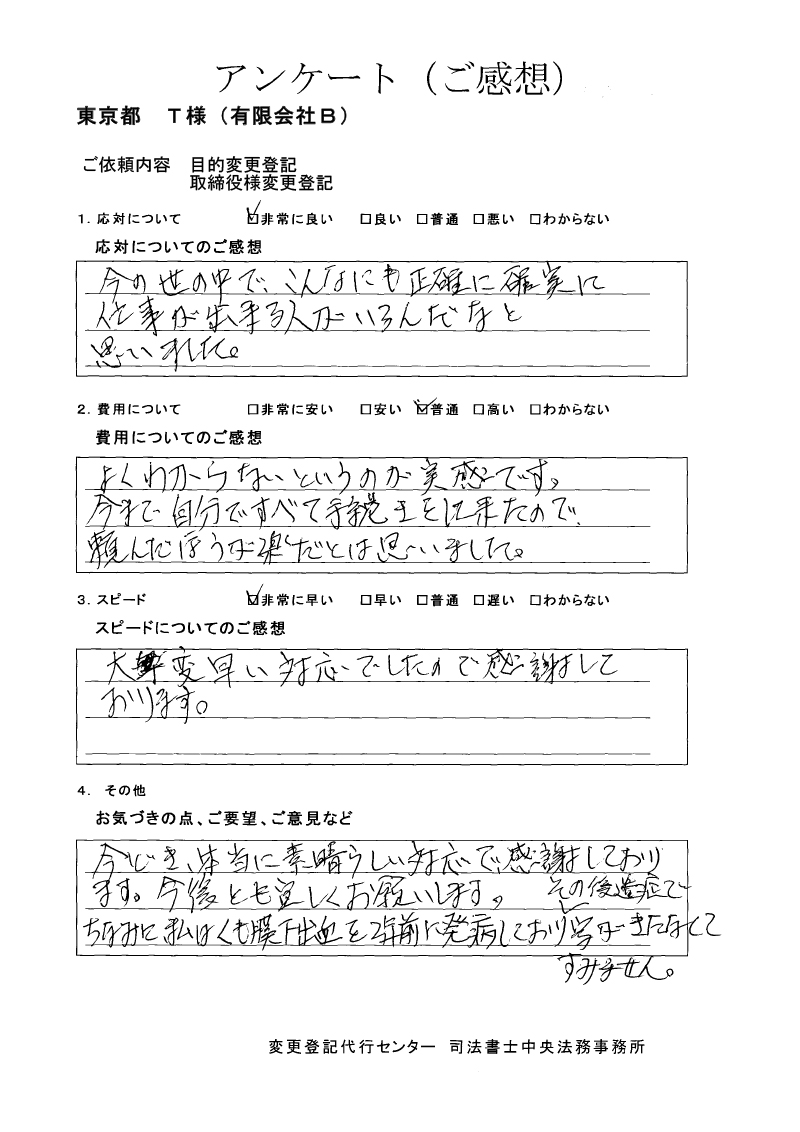 アンケート（ご感想）
東京都　Ｔ様（有限会社Ｂ）
ご依頼内容　目的変更登記
取締役様変更登記
1. 応対について　☑非常に良い　□良い　□普通　□悪い　□わからない
応対についてのご感想
今の世の中で、こんなにも正確に確実に
仕事が出来る人がいるんだなと
思いました。
2. 費用について　□非常に安い　□安い　☑普通　□高い　□わからない
費用についてのご感想
よくわからないというのが実感です。
今まで自分ですべて手続きをして来たので、
頼んだほうが楽だとは思いました。
3. スピード　☑非常に早い　□早い　□普通　□遅い　□わからない
スピードについてのご感想
大変早い対応でしたので感謝して
おります。
4.　その他
お気づきの点、ご要望、ご意見など
今どき、本当に素晴らしい対応で、感謝しており
ます。今後とも宜しくお願いします。
ちなみに私はくも膜下出血を2年前に発病しており、その後遺症で字がきたなくて
すみません。
変更登記代行センター　司法書士中央法務事務所